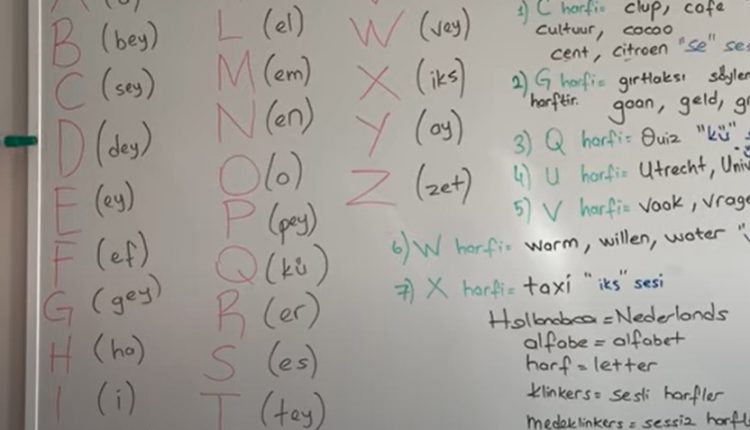 B (bey)
C (sey)
D (dey)
E (ey)
F (ef)
G (gey)
H (ha)
I (i)
L (el)
M (em)
N (en)
O (o)
P (pey)
Q (kü)
R (er)
S (es)
T (tey)
W (vey)
X (iks)
Y (ay)
Z (zet)
1) C harfi= clup, cafe
cultuur, cacao
cent, citroen "se" ses
2) G harfi= gırtlaksı söylen
harftir. gaan, geld, gr
3) Q harfi= Quiz "kü" s
4) U harfi= Utrecht, Univ
5) V harfi= vaak, vrage
6) W harfi= warm, willen, water "v
7) X harfi= taxi "iks" sesi
Hollandaca = Nederlands
alfabe = alfabet
harf = letter
klinkers = sesli harfler
medeklinkers = sessiz harfl